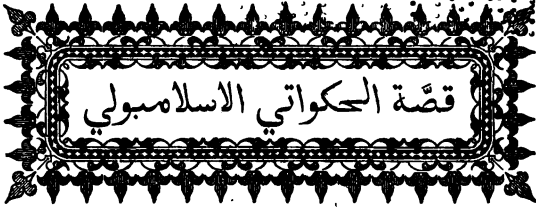 قصَّة الحكواتي الاسلامبولي